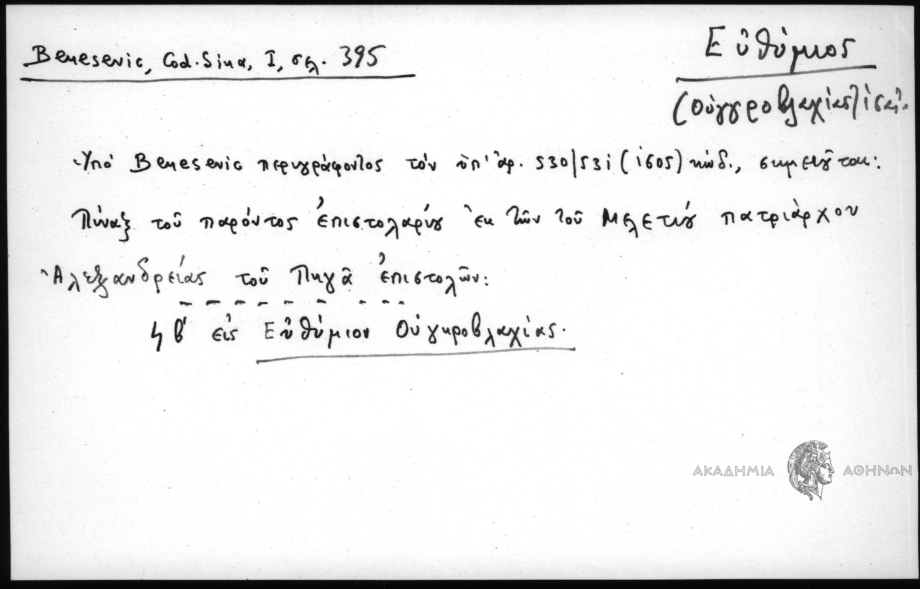 Benesevic, Cod. Sina, I, σελ. 395
Εὐθύμιος
(Οὑγγροβλαχίας)
Ὑπό Benesevic περιγράφοντος τόν ὑπ' ἀρ. 530/531 (1605) κώδ., σημειοῦται:
Πίναξ τοῦ παρόντος ἐπιστολαρίου ἐκ τῶν τοῦ Μελετίου πατριάρχου
Ἀλεξανδρείας τοῦ Πηγᾶ ἐπιστολῶν:
Ϟβ' εἰς Εὐθύμιον Οὑγκροβλαχίας.
ΑΚΑΔΗΜΙΑ ΑΘΗΝΩΝ